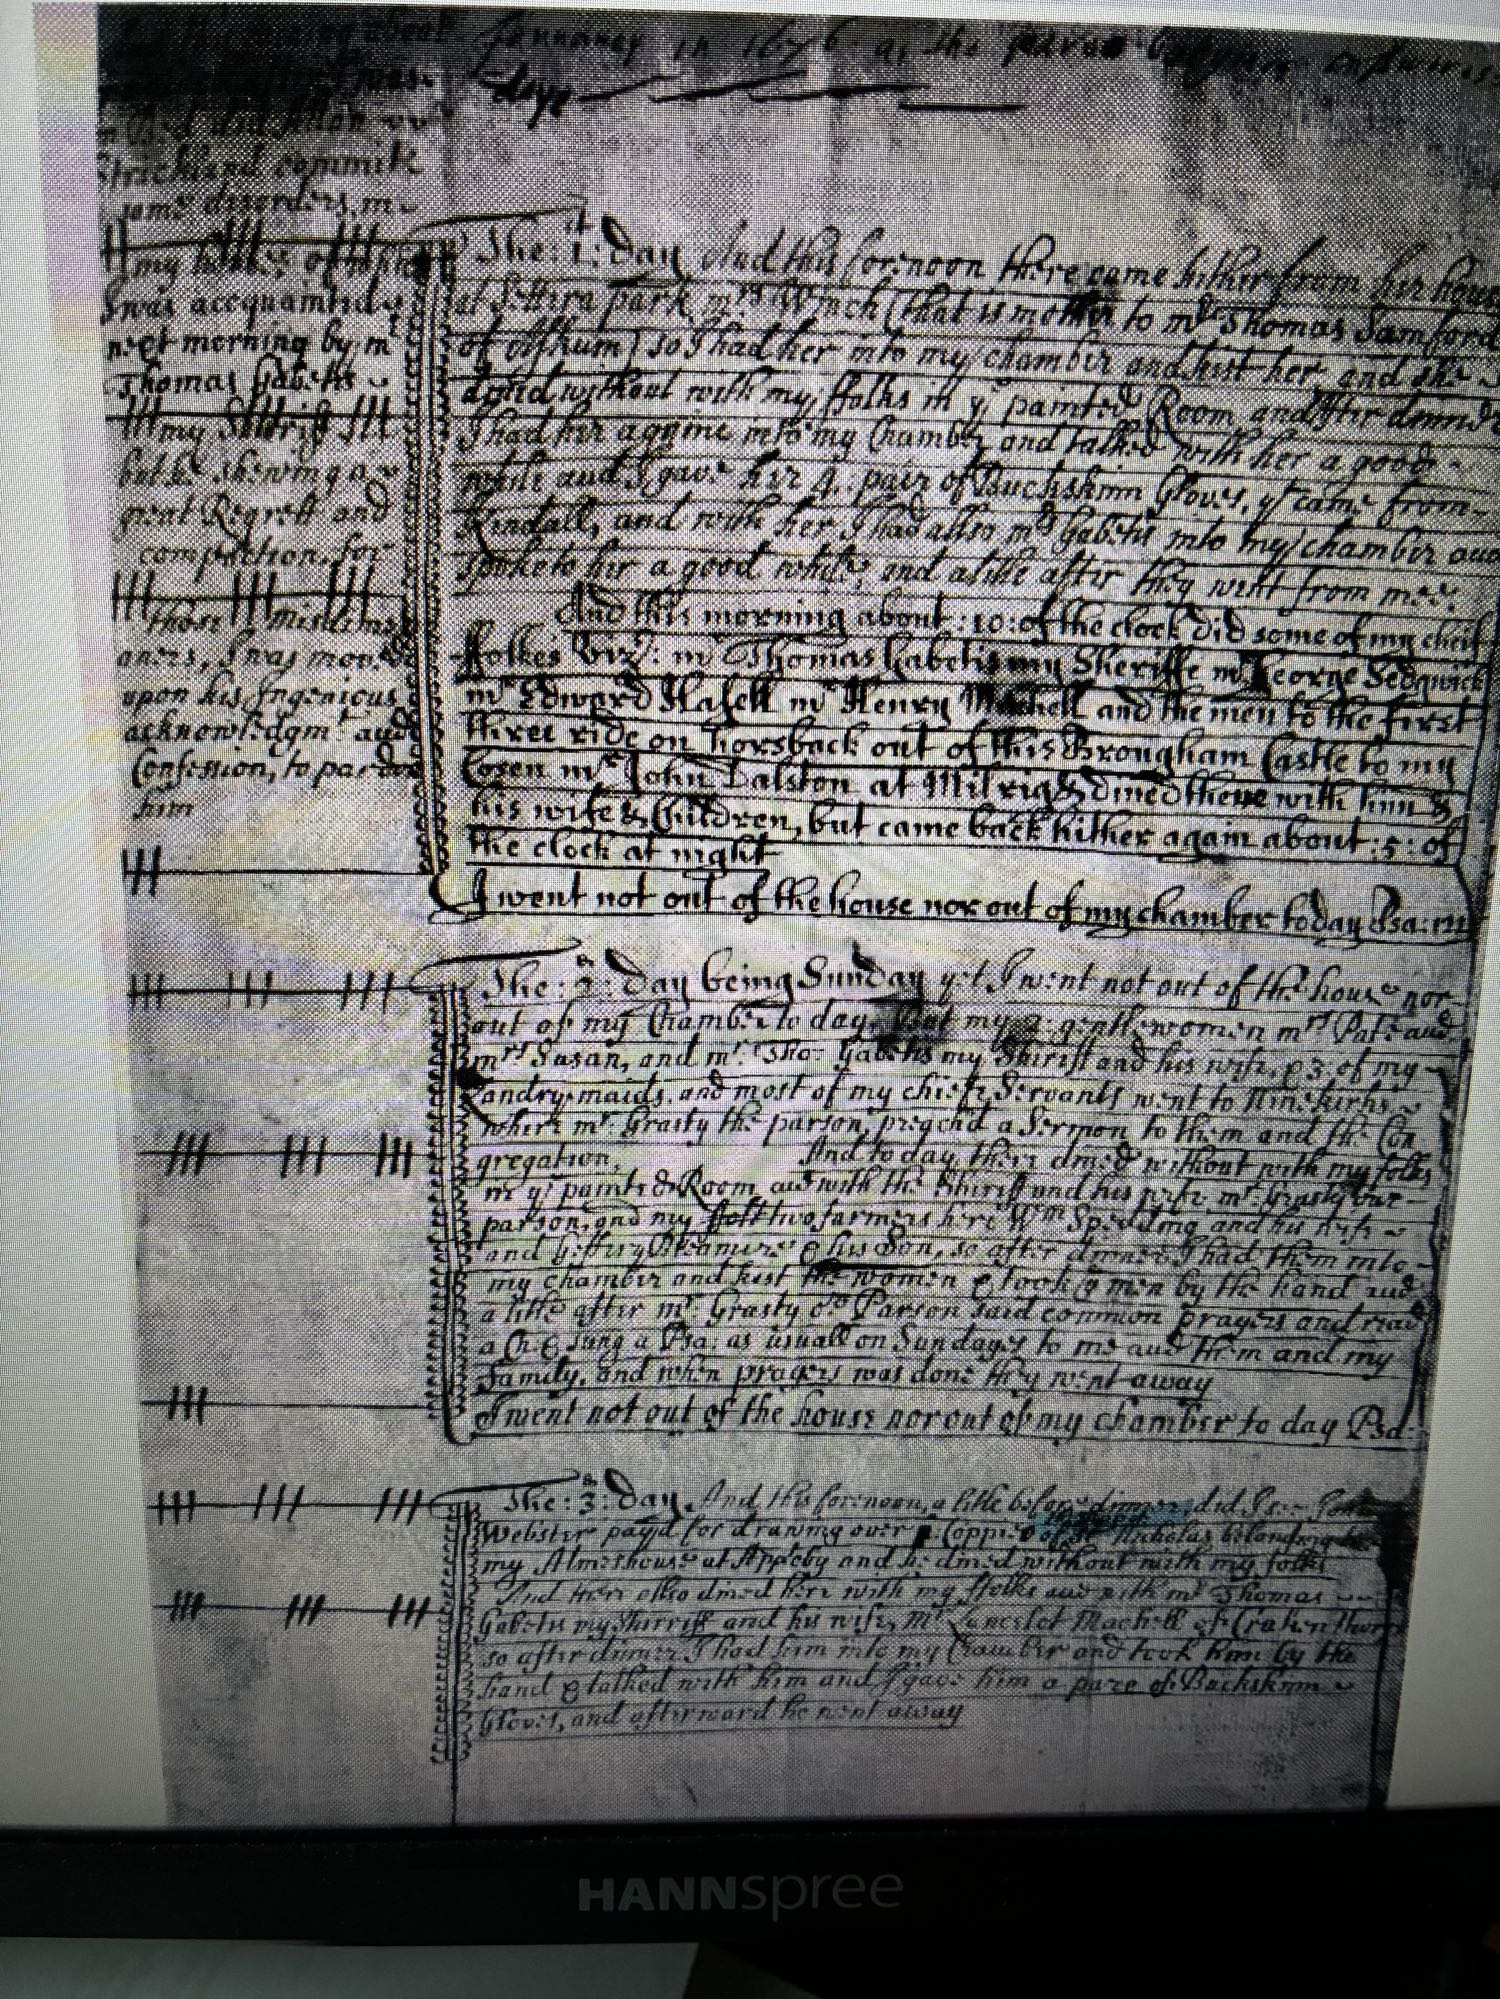 January in 1676
daye
Strickland committ
some disorders, in
my house of which
I was accquainted
next morning by mr
Thomas Gabetis
my Sherif
but he shewing a
great Regrett and
compu'ction, for
those misdem
aners, I was moved
upon his Ingenious
acknowledgmt and
Confession, to pardon
him
The : 1 : Day And this forenoon there came hither from her house
at Setera park mrs Winch (that is mother to mrs Thomas Samford
of Askum) so I had her into my chamber and kist her, and she
dined without with my ffolks in ye painted Room, and after dinner
I had her againe into my Chamber and talked with her a good
while and I gave her 4. pair of Buckskinn Gloves, yt came from
Kendall, and with her I had allso mrs Gabetis into my chamber and
spoke to her a good while, and a little after they went from mee.
And this morning about : 10 : of the clock did some of my cheif
ffolkes viz: mr Thomas Gabetis my Sheriffe mr George Sedgwick
mr Edward Hasell mr Henry Machell and the men to the first
three ride on horsback out of this Brougham Castle to my
Cosen mr John Dalston at Milrigg & dined there with him &
his wife & Children, but came back hither again about : 5 : of
the clock at night
I went not out of the house nor out of my chamber today Psa:
The : 2 : Day being Sunday yet I went not out of the house nor
out of my Chamber to day But my 2. gentlewomen mrs Pate and
mrs Susan, and mr. Tho: Gabetis my Shiriff and his wife, & 3. of my
Landry-maids, and most of my chiefe Servants went to Ninekirks
where mr. Grasty the parson, preached a Sermon to them and the Con
gregation, And to day there dined without with my folks
in ye painted Room and with the Shiriff and his wife mr. Grasty our
parson, and my two farmers here Wm Spedding and his wife
and Jeffrey & his Son, so after dinner I had them into
my chamber and kist the women & took ye men by the hand and
a little after mr. Grasty ye Parson said common prayers and read
a Ch. & Sung a Psa: as usuall on Sundayes to me and them and my
Family, and when prayers was done they went away
I went not out of the house nor out of my chamber to day Psa:
The : 3 : Day. And this forenoon, a little before dinner, did I see John
Webster payd for drawing over a Coppie of St Nicholas
my Almeshouse at Appleby and he dined without with my folks
And there allso dined here with my ffolks and with mr Thomas
Gabetis my Shirriff and his wife, Mr Lancelot Machell of
so after dinner I had him into my Chamber and took him by the
hand & talked with him and I gave him a pare of Buckskinn
Gloves, and afterward he went away
HANNspree